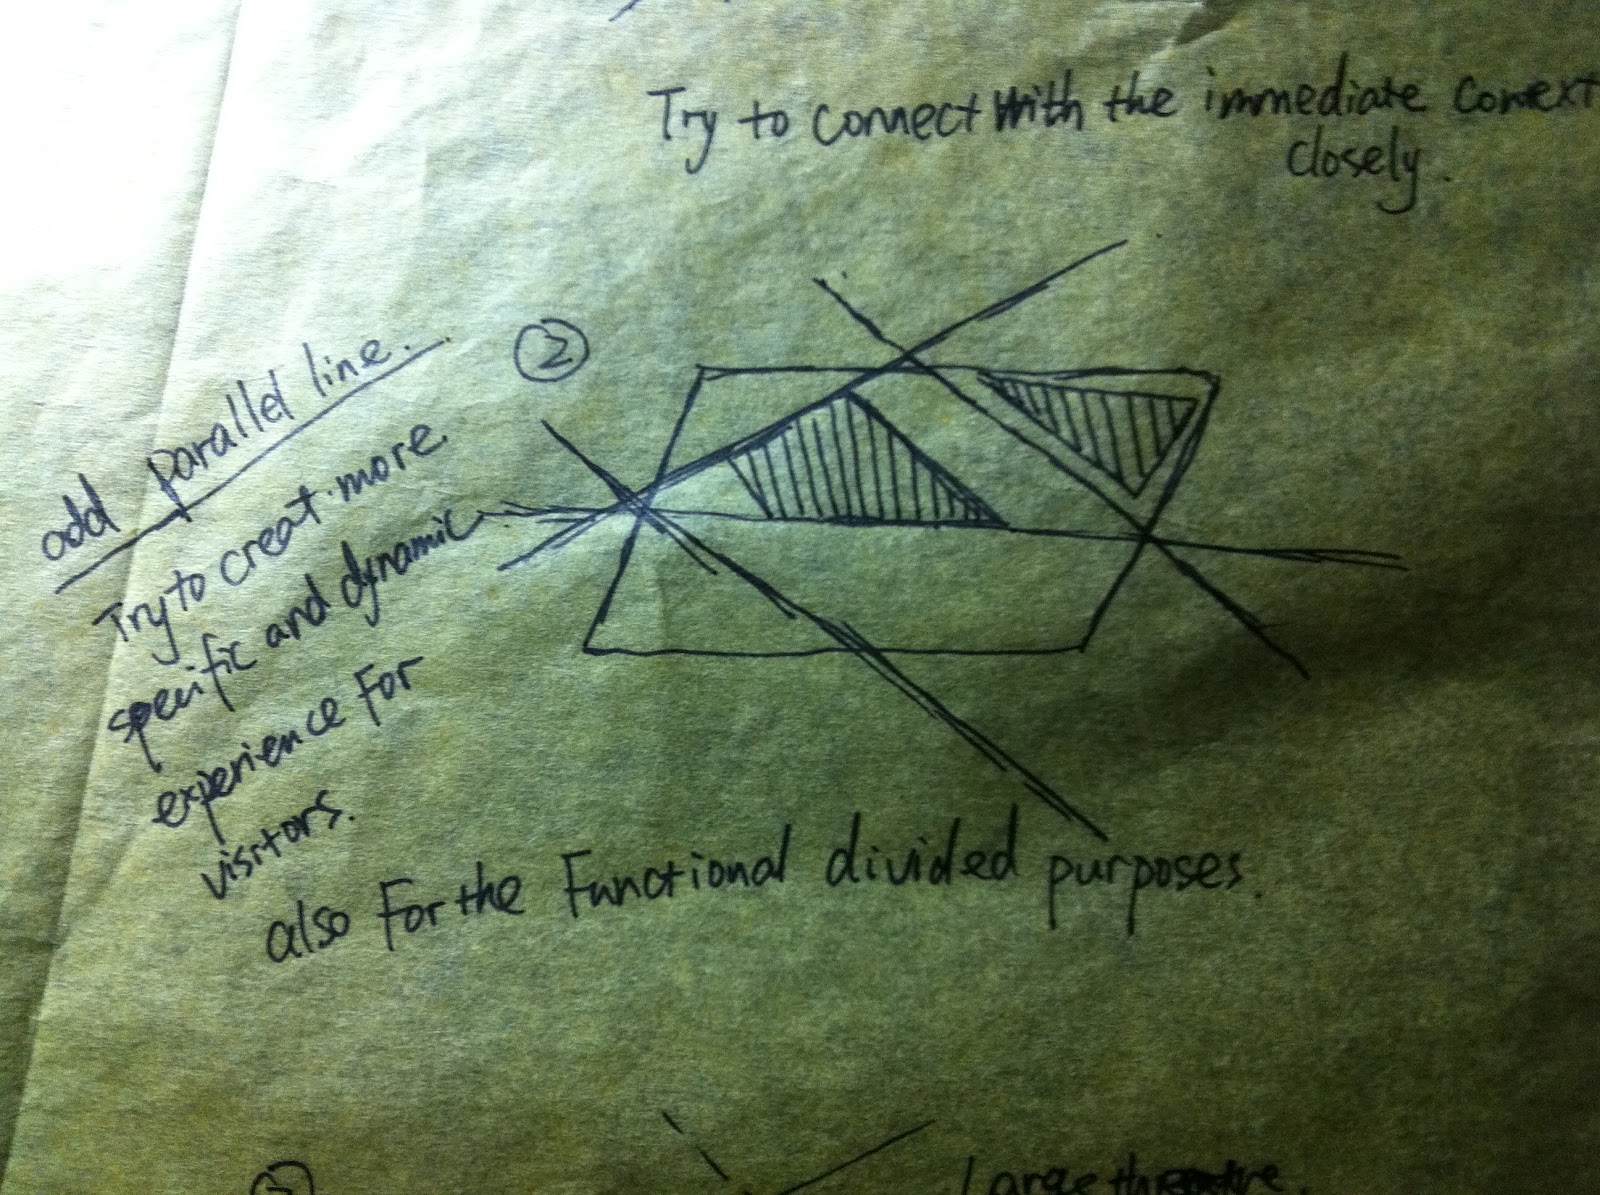 Try to connect with the immediate context
closely.
②
add parallel line.
Try to creat more
specific and dynamic
experience For
visitors.
also For the Functional divided purposes.
Large